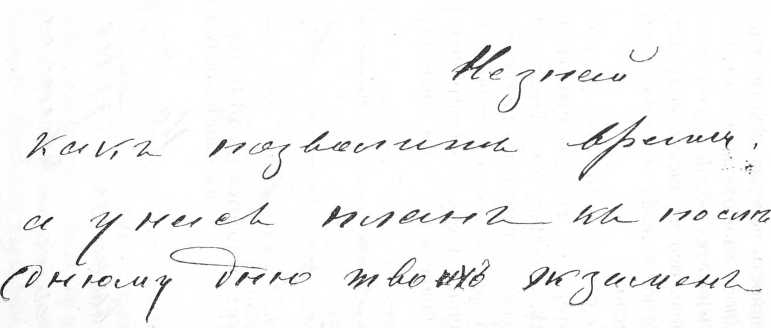 Незнай
какъ позволитъ время.
а у насъ планъ къ послѣ
днюму дню твоихъ экзаменъ